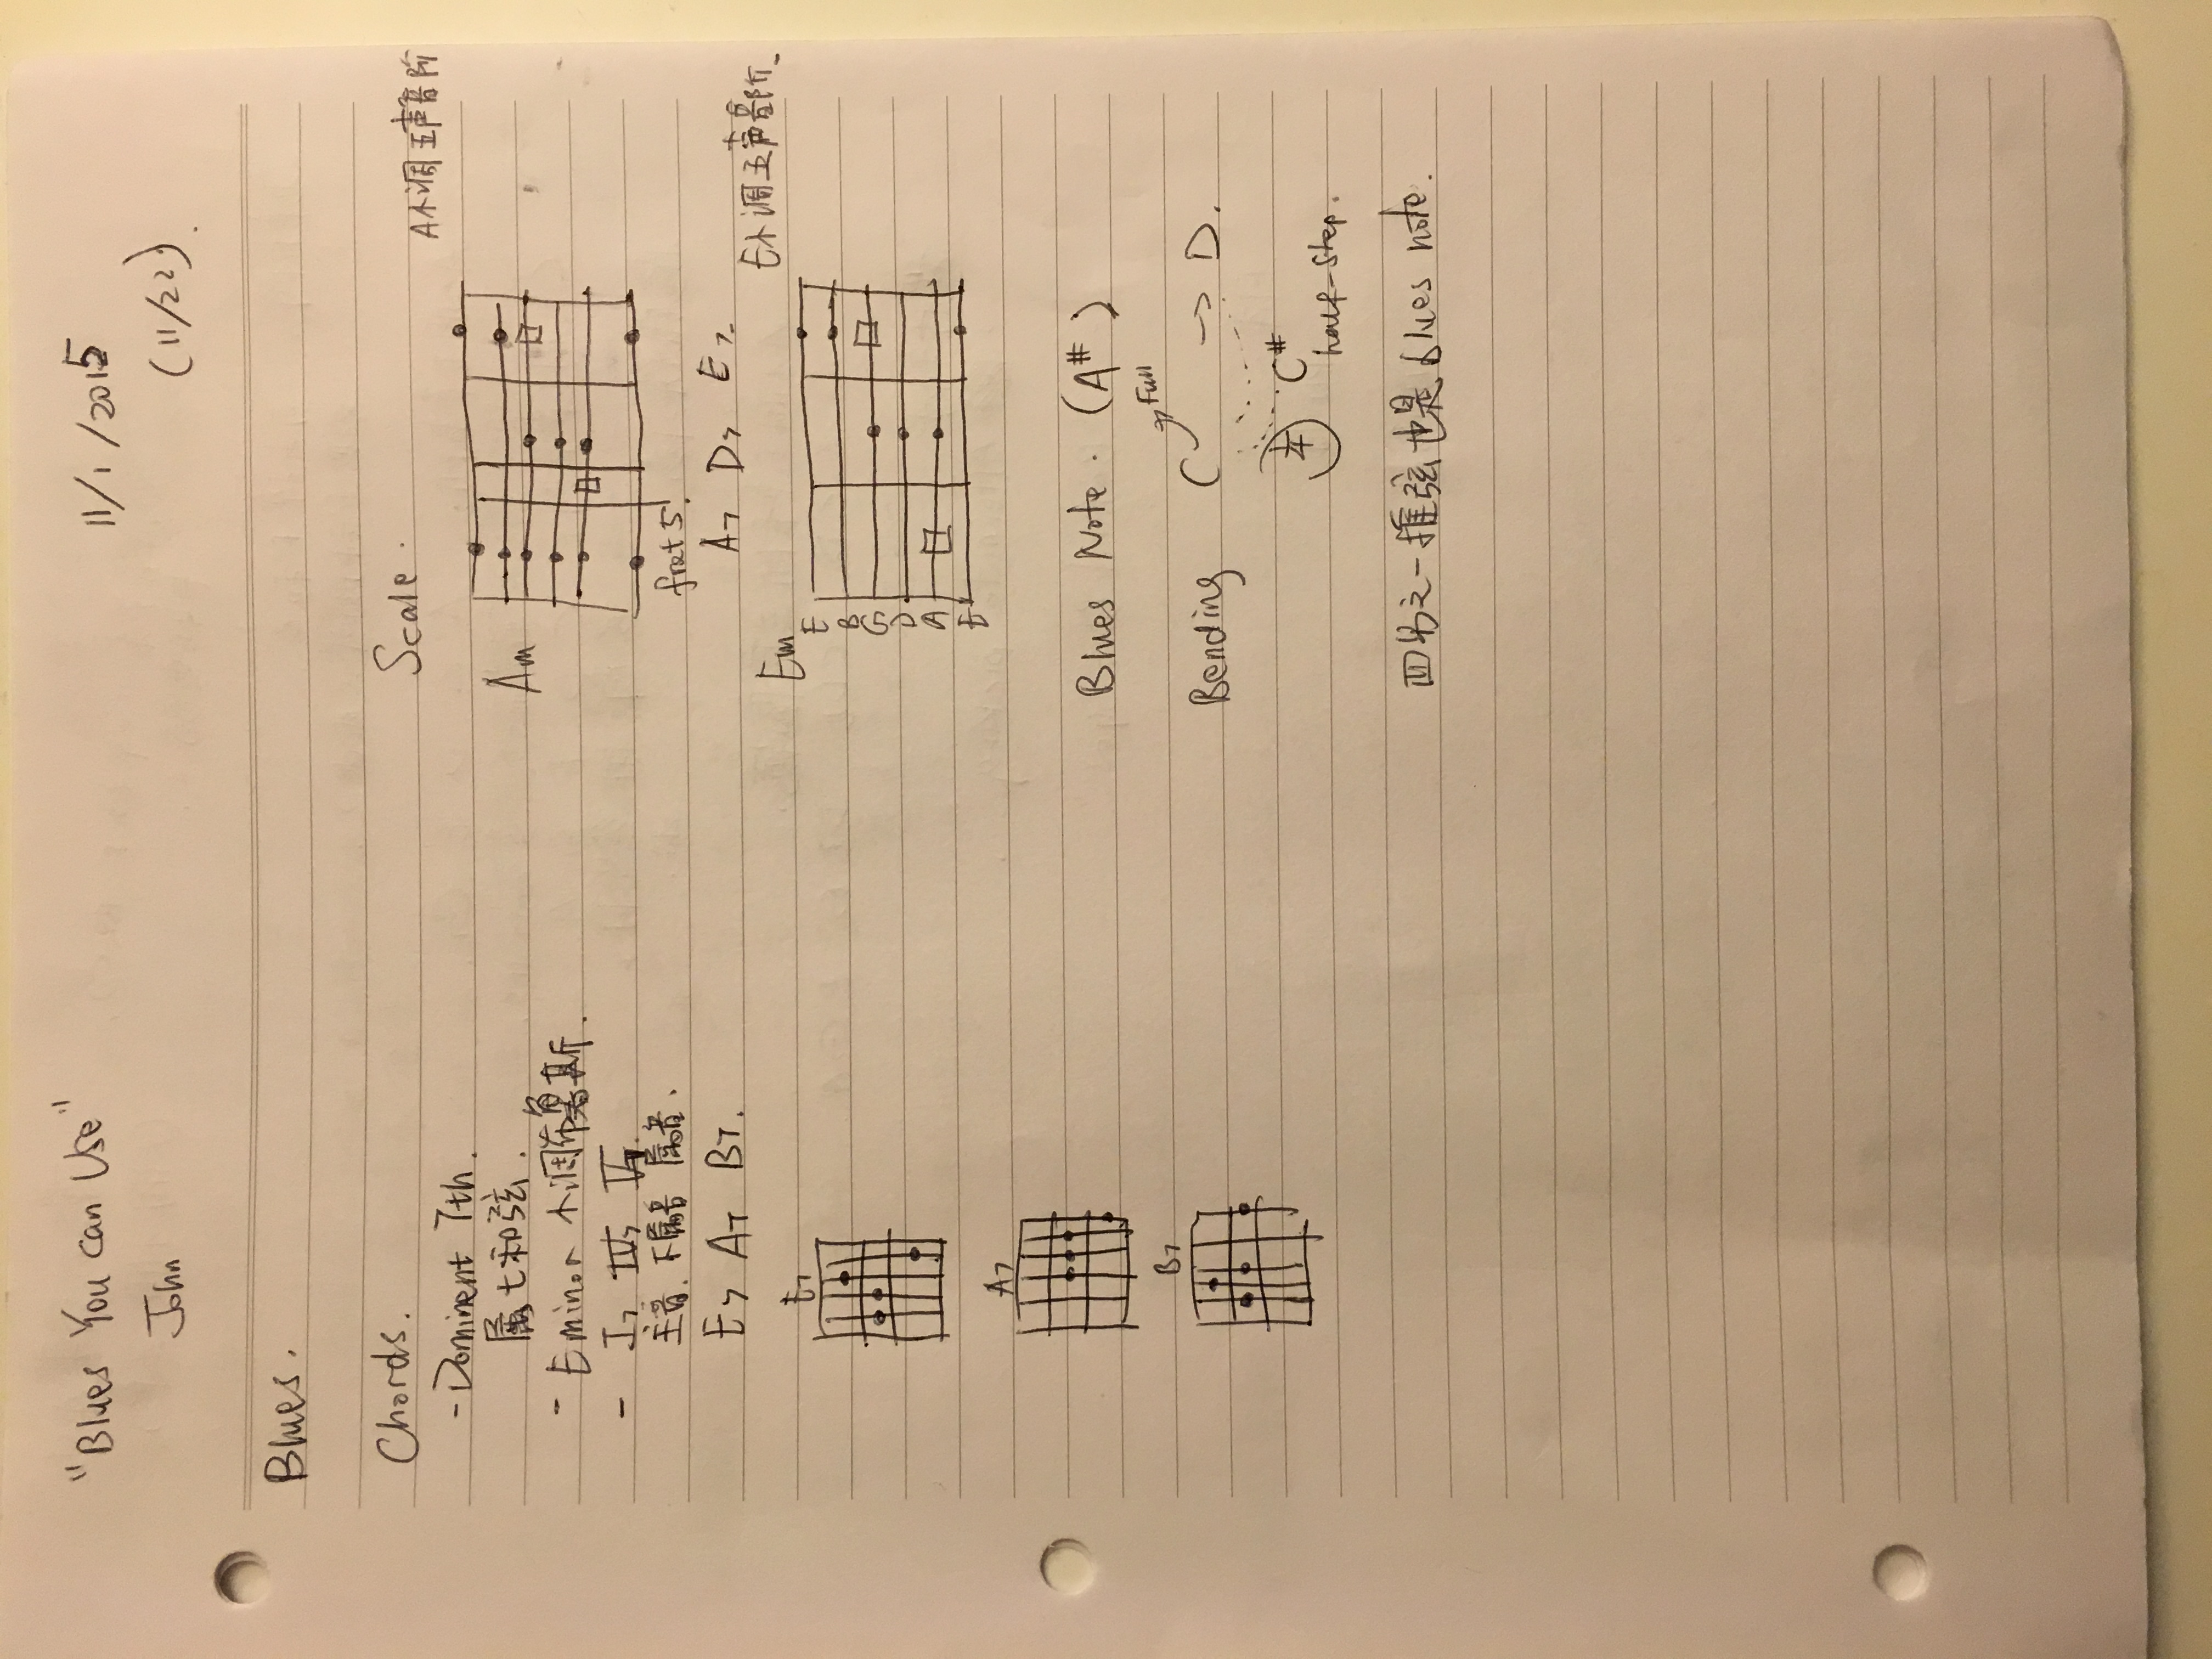 "Blues You can Use" 11/1/2015
John (11/22).
Blues.
Chords.
- Dominent 7th.
属七和弦.
- E minor 小调布鲁斯.
- I7 IV7 V7.
主音. 下属音 属音.
E7 A7 B7.
E7
A7
B7
Scale.
A小调五声音阶
Am
fret 5
A7 D7 E7
E小调五声音阶.
Em
E
B
G
D
A
E
Blues Note. (A#)
Full
Bending C → D.
C#
half-step.
四分之一推弦也是 blues note.